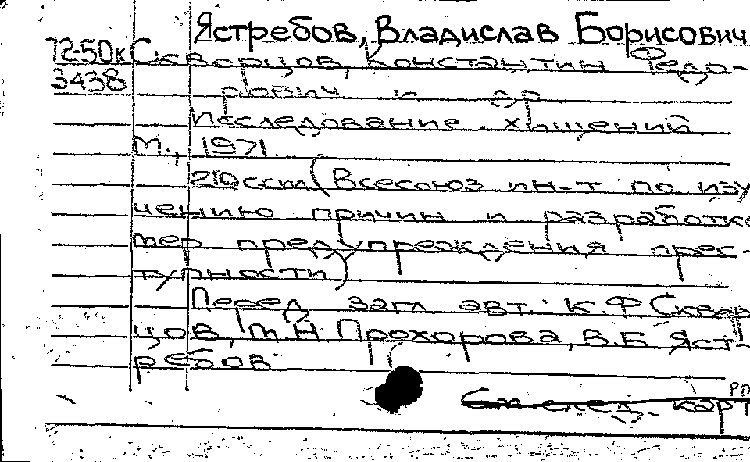 Ястребов, Владислав Борисович
72-50к Скворцов, Константин Федо-
3438 рович и др.
Исследование хищений
М., 1971
210 с ст (Всесоюз ин-т по изу
чению причин и разработке
мер предупреждения прес-
тупности)
Перед загл авт.: К.Ф Сквор
цов, Т.Н Прохорова, В.Б Яст-
ребов
РП
См след. карт